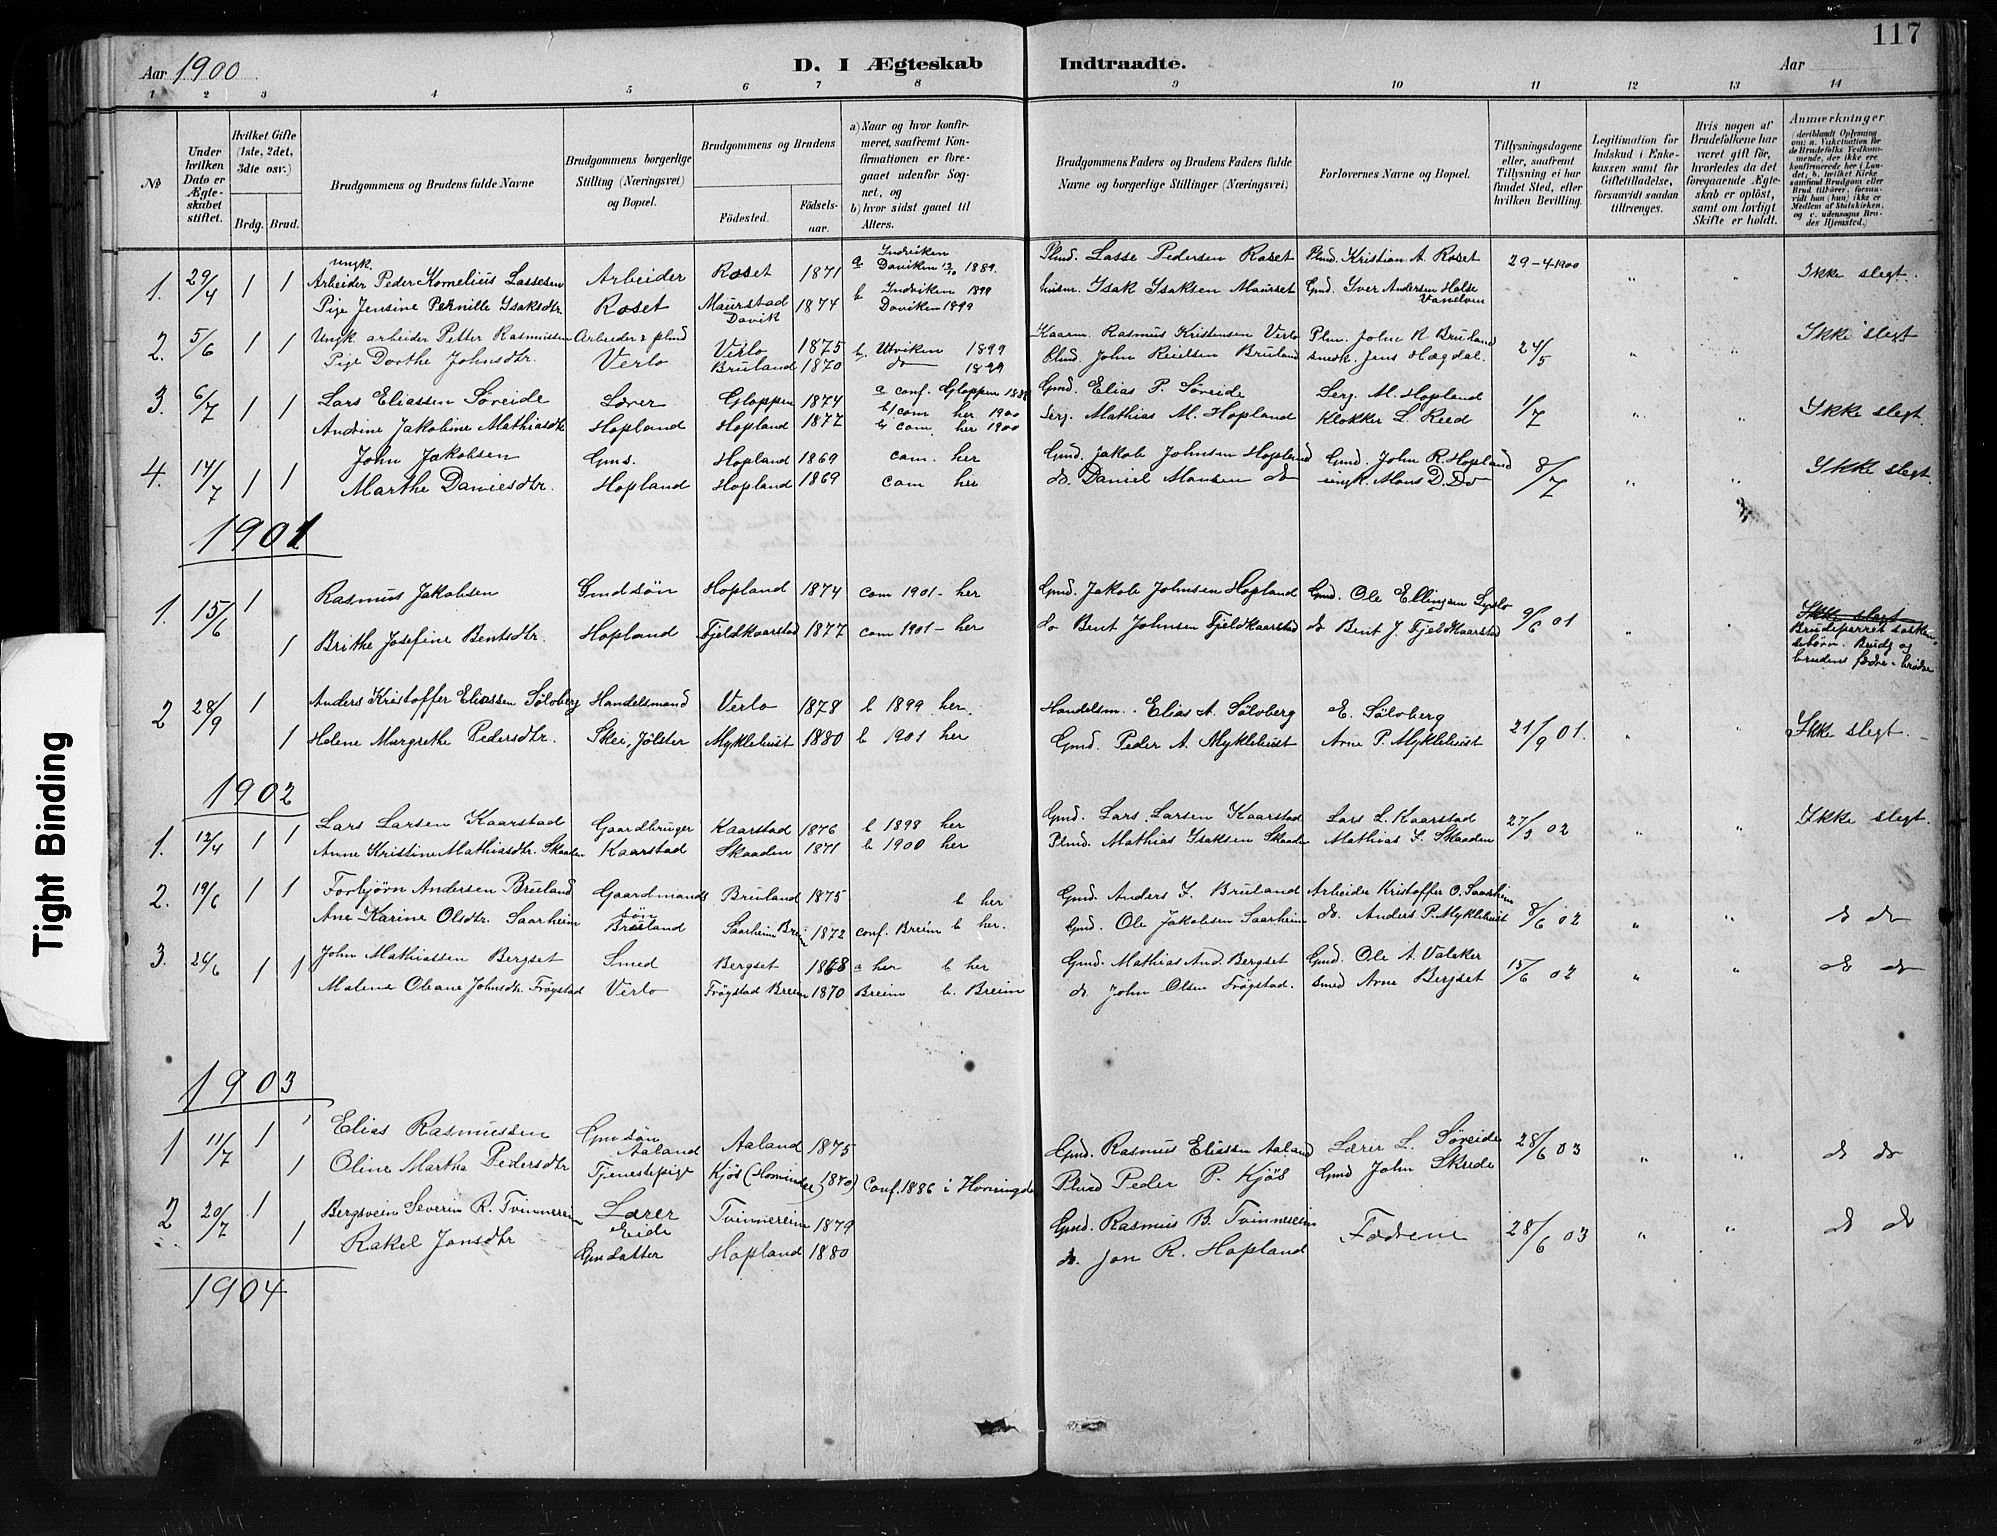 117
Aar 1900
D. I Ægteskab Indtraadte.
Aar
1 2 3 4 5 6 7 8 9 10 11 12 13 14
No
Under hvilken Dato er Ægteskabet stiftet.
Hvilket Gifte (1ste, 2det, 3die osv.)
Brdg. Brud.
Brudgommens og Brudens fulde Navne
Brudgommens borgerlige Stilling (Næringsvei) og Bopæl.
Brudgommens og Brudens
Fødested. Fødselsaar.
a) Naar og hvor konfirmeret, saafremt Konfirmationen er foregaaet udenfor Sognet, og
b) hvor sidst gaaet til Alters.
Brudgommens Faders og Brudens Faders fulde Navne og borgerlige Stillinger (Næringsvei)
Forlovernes Navne og Bopæl.
Tillysningsdagene eller, saafremt Tillysning ei har fundet Sted, efter hvilken Bevilling.
Legitimation for Indskud i Enkekassen samt for Giftetilladelse, forsaavidt saadan tiltrænges.
Hvis nogen af Brudefolkene har været gift før, hvorledes da det foregaaende Ægteskab er opløst, samt om lovligt Skifte er holdt.
Anmærkninger
1. 29/4 1 1 Ungk. Arbeider Peder Kornelius Lassesen Arbeider Roset 1871 a Indviken Daviken 1889. Plmd. Lasse Pedersen Roset Plmd. Kristian A. Roset 29-4-1900 " " Ikke slegt.
Pige Jensine Pernille Isaksdtr. Roset Maurstad Davik 1874 b Indviken 1899 Daviken 1899 husm. Isak Isaksen Maurset Gmd. Iver Andersen Holde Vanelven
2. 5/6 1 1 Ungk arbeider Petter Rasmussen Arbeider & plmd Verlo 1875 b. Utviken 1899 Kaarm. Rasmus Kristensen Verlo Plm. John R Bruland 24/5 " " Ikke slegt
Pige Dorthe Johnsdtr. Verlo Bruland 1870 do 1899 Plmd. John Reielsen Bruland smedk. Jens Hægdal.
3. 6/7 1 1 Lars Eliassen Søreide Lærer Gloppen 1874 a conf. Gloppen 1888 b/com her 1900 Gmd. Elias P. Søreide Serg. M. Hopland 1/7 " " Ikke slegt.
Andrine Jakobine Mathiasdtr Hopland Hopland 1877 b com. her 1900 Serg. Mathias M. Hopland Klokker L. Reed
4. 14/7 1 1 John Jakobsen Gms. Hopland 1869 com. her Gmd. Jakob Johnsen Hopland Gmd. John R. Hopland 8/7 " " Ikke slegt.
Marthe Danielsdtr. Hopland Hopland 1869 com her do. Daniel Monsen do ungk. Mons D. Do
1901
1. 15/6 1 Rasmus Jakobsen Gmdsøn Hopland 1874 com 1901 - her Gmd. Jakob Johnsen Hopland Gmd. Ole Ellingsen 9/6 01 " " Ikke slegt
1 Brithe Josefine Bentsdtr. Hopland Fjeldkaarstad 1877 com 1901 - her do Bent Johnsen Fjeldkaarstad do Bent J. Fjeldkaarstad Brudeparret søskendebørn. Brudg og brudens fædre - brødre
2 28/9 1 Anders Kristoffer Eliassen Søloberg Handelsmand Verlo 1878 b 1899 her. Handelsm. Elias A. Søloberg E. Søloberg 21/9 01. " " Ikke slegt.
1 Helene Margrethe Pedersdtr. Skei, Jølster Myklebust 1880 b 1901 her Gmd. Peder A. Myklebust Arne P. Myklebust
1902
1. 12/4 1 1 Lars Larsen Kaarstad Gaardbruger Kaarstad 1876 b 1898 her Gmd. Lars Larsen Kaarstad Lars L. Kaarstad 27/3 02 " " Ikke slegt.
Anne Kristine Mathiasdtr. Skaaden Kaarstad Skaaden 1871 b 1900 her Plmd. Mathias Isaksen Skaaden Mathias I. Skaaden
2. 19/6 1 1 Torbjørn Andersen Bruland Gaardmands søn Bruland 1875 b her Gmd. Anders I. Bruland Arbeider Kristoffer O. Saarheim 8/6 02 " " do do
Ane Karine Olsdtr. Saarheim Bruland Saarheim Breim 1872 conf. Breim b her. Gmd. Ole Jakobsen Saarheim do. Anders P. Myklebust
3. 26/6 1 1 John Mathiassen Bergset Smed Bergset 1868 a her b her Gmd. Mathias And. Bergset Gmd. Ole A. Valaker 15/6 02 " " do do
Malene Oleane Johnsdtr. Frøystad Verlo Frøystad Breim 1870 Breim b. Breim do. John Olsen Frøystad. Smed Arne Bergset
1903
1 11/7 1 1 Elias Rasmussen Gmdsøn Aaland Aaland 1875 Gmd. Rasmus Eliassen Aaland Lærer L. Søreide 28/6 03 " " do do
1 Oline Martha Pedersdtr Tjenestepige Kjøs (Hornindal) 1870 Conf. 1886 i Hornindal Plmd Peder P. Kjøs Gmd John Skrede
2 20/7 1 Bergsvein Severin R. Tvinnereim Lærer Eide Tvinnereim 1879 Gmd. Rasmus B. Tvinnereim Fædrene 28/6 03 " " do do
1 Rakel Jonsdtr Gmdatter Hopland 1880 do. Jon R. Hopland
1904
Tight Binding